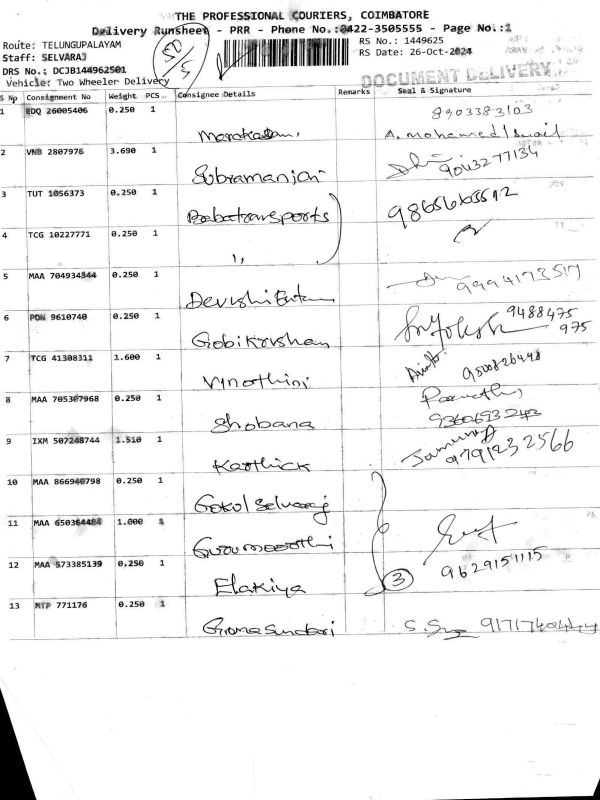 THE PROFESSIONAL COURIERS, COIMBATORE
Delivery Runsheet - PRR - Phone No.:0422-3505555 - Page No.:1
Route: TELUNGUPALAYAM RS No.: 1449625
Staff: SELVARAJ RS Date: 26-Oct-2024
DRS No.: DCJB144962501
Vehicle: Two Wheeler Delivery
DOCUMENT DELIVERY
S No Consignment No Weight PCS.. Consignee Details Remarks Seal & Signature
1 EDQ 26005406 0.250 1 8903383103
A. Mohamed Ismail
2 VNB 2807976 3.690 1
Subramanian
3 TUT 1056373 0.250 1
Babatransports
4 TCG 10227771 0.250 1
"
5 MAA 704934844 0.250 1 9994173517
6 PON 9610740 0.250 1 9488475
Gobikrishan 975
7 TCG 41308311 1.600 1
Vinothini
8 MAA 705307968 0.250 1
Shobana
9 IXM 507248744 1.510 1 9791232566
Karthick
10 MAA 866940798 0.250 1
Gokul Selvaraj
11 MAA 650364484 1.000 1
Gurumoorthi
12 MAA 573385139 0.250 1 9629151115
Elakiya 3
13 MTP 771176 0.250 1